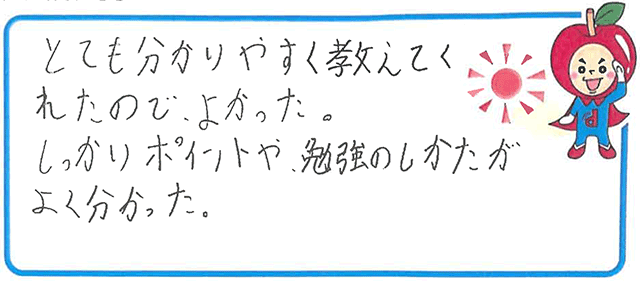 とても分かりやすく教えてく
れたので、よかった。
しっかりポイントや、勉強のしかたが
よく分かった。